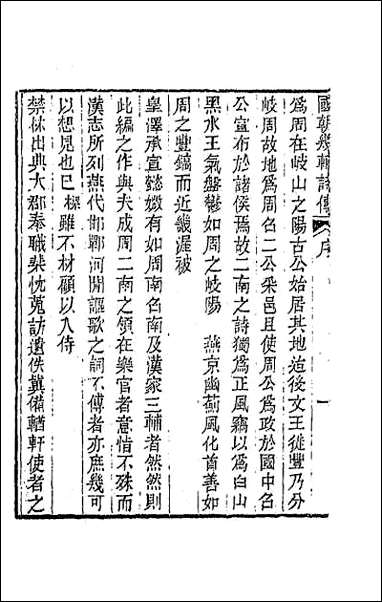 國朝畿輔詩傳 序 一
爲周在岐山之陽古公始居其地迨後文王徙豐乃分
岐周故地爲周召二公采邑且使周公爲政於國中召
公宣布於諸侯焉故二南之詩獨爲正風竊以爲白山
黑水王氣盤鬱如周之岐陽 燕京幽薊風化首善如
周之豐鎬而近畿渥被
皇澤承宣懿媺有如周南召南及漢家三輔者然然則
此編之作與夫成周二南之領在樂官者意惜不殊而
漢志所列燕代邯鄲河間謳歌之詞不傳者亦庶幾可
以想見也已樑雖不材顧以入侍
禁林出典大郡奉職柴忱蒐訪遺佚冀備輶軒使者之